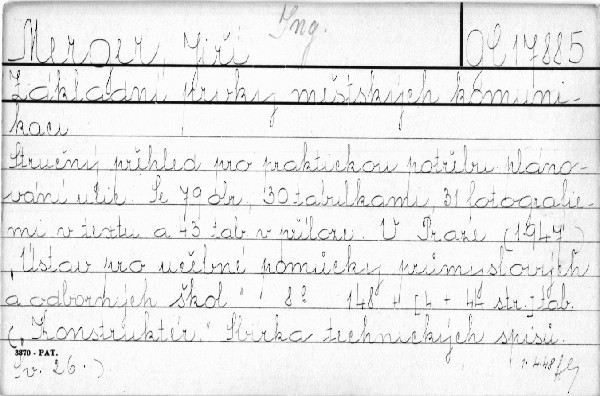 Ing.
Merger, Jiří
OC 17885
Základní prvky městských komuni-
kací
Stručný přehled pro praktickou potřebu pláno-
vání ulic. Se 79 obr., 30 tabulkami, 31 fotografie-
mi v textu a 43 tab. v příloze. V Praze (1947)
"Ústav pro učební pomůcky průmyslových
a odborných škol" 8° 148 + [4 + 44 str.] tab.
("Konstruktér." Sbírka technických spisů.
3870 - PAT.
Sv. 26.)